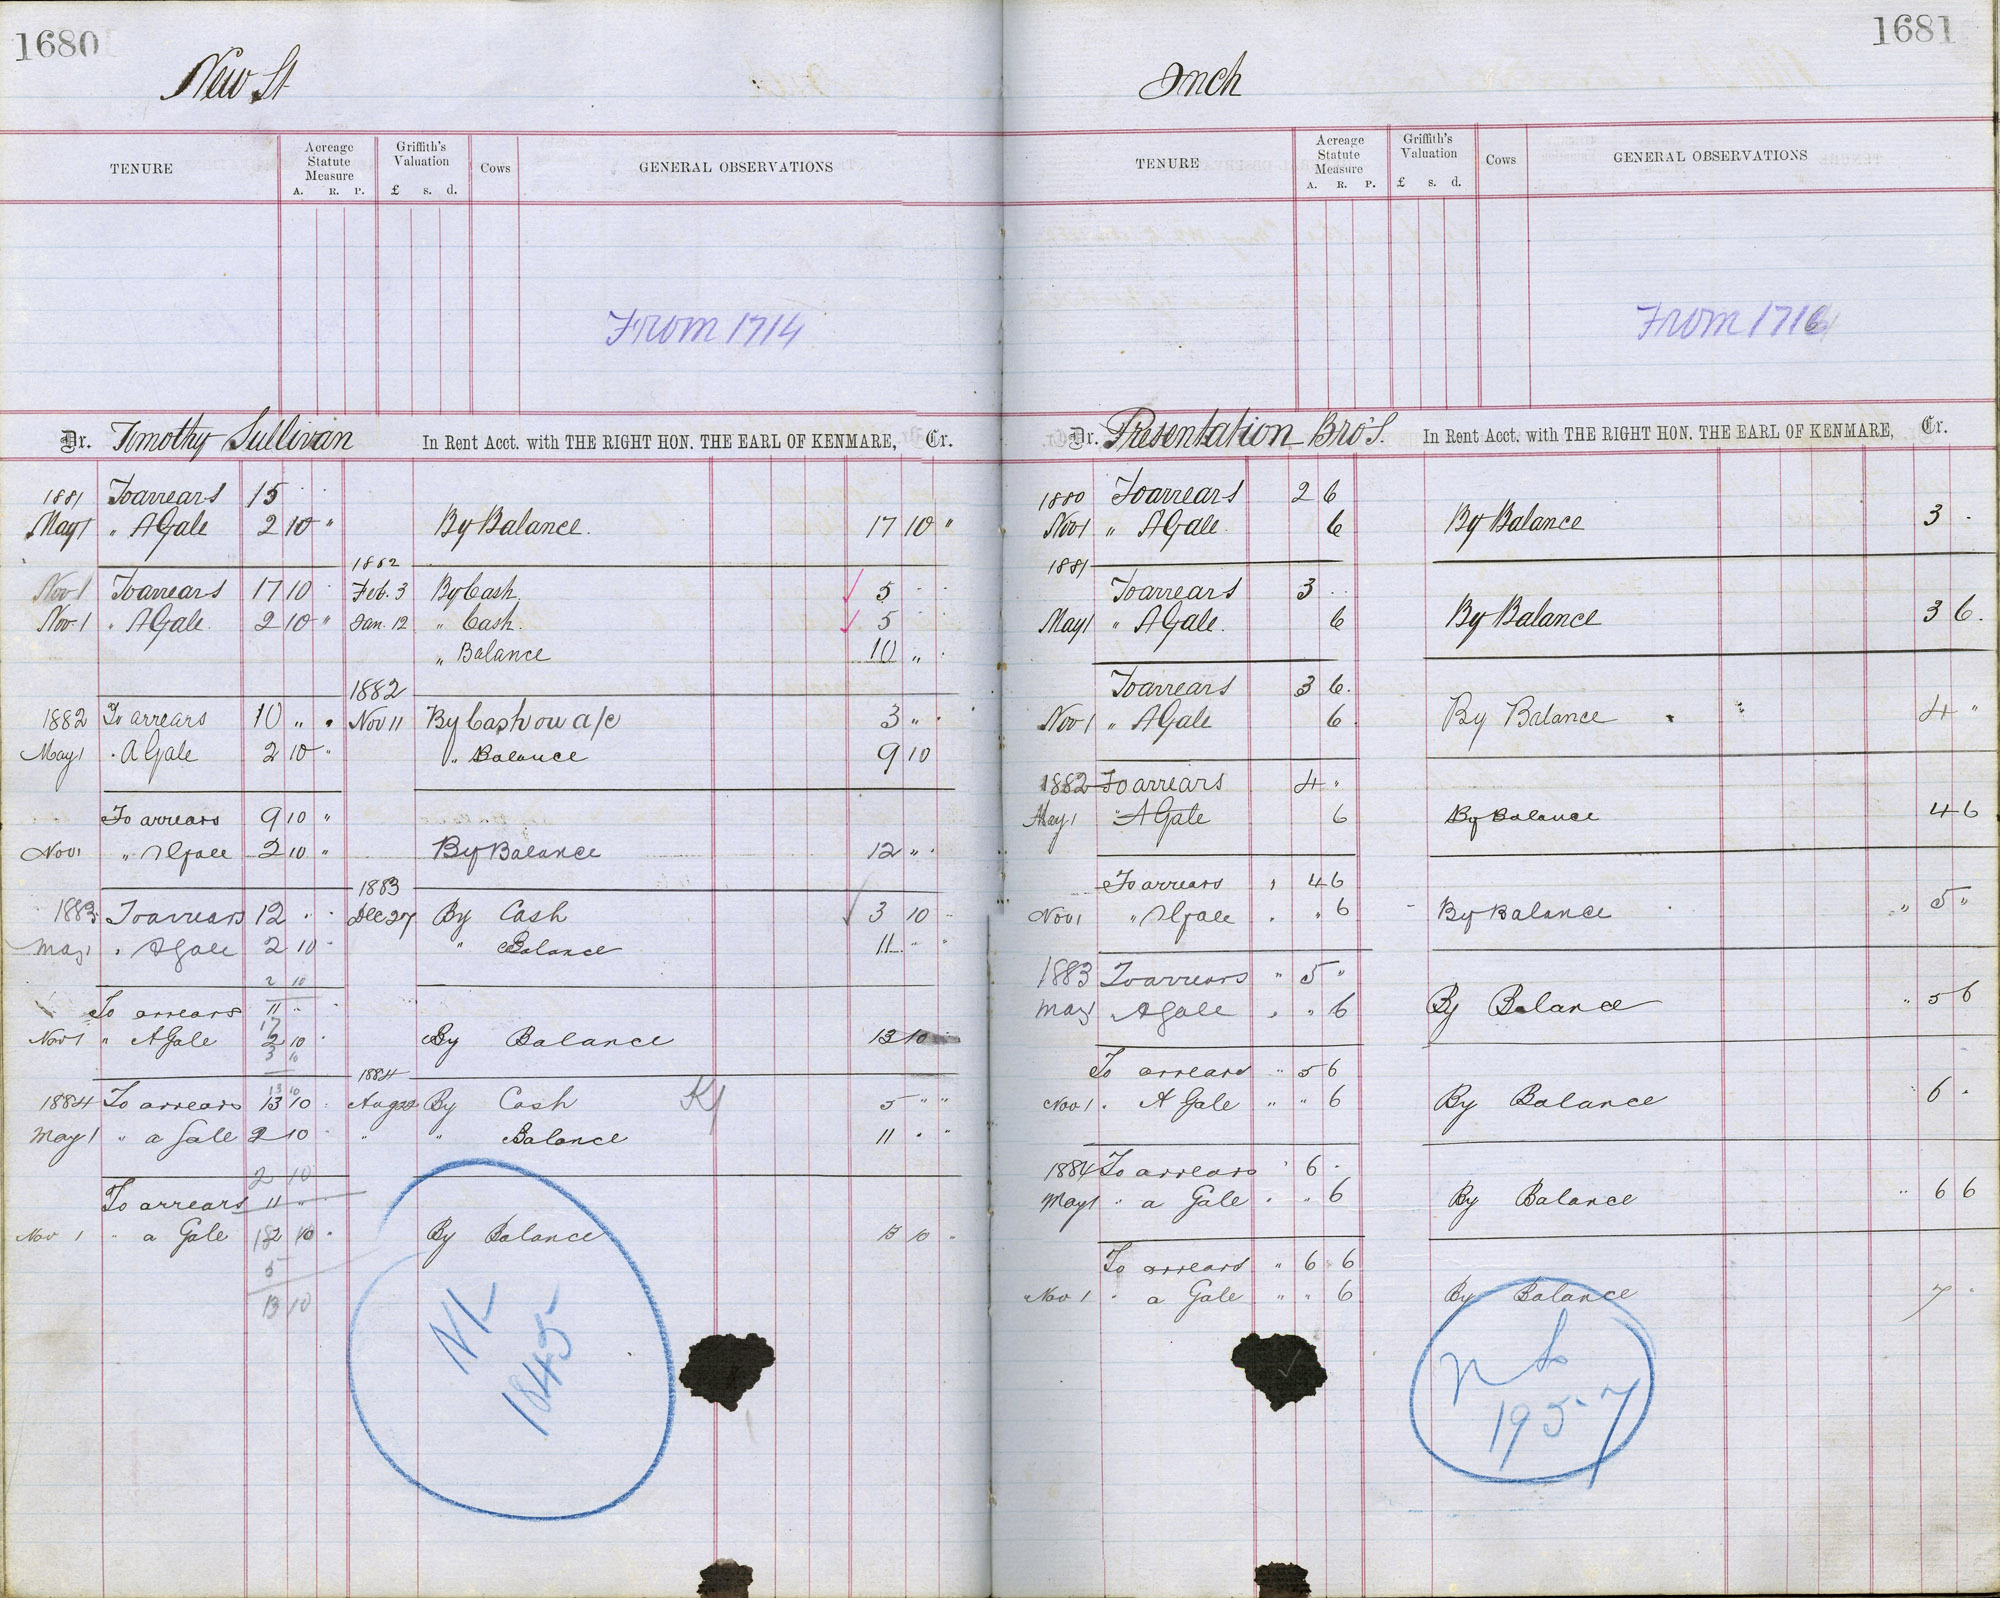 1680
New St
TENURE
Acreage Statute Measure
A. R. P.
Griffith's Valuation
£ s. d.
Cows
GENERAL OBSERVATIONS
From 1714
Dr. Timothy Sullivan In Rent Acct. with THE RIGHT HON. THE EARL OF KENMARE, Cr.
1881 To arrears 15 . .
May 1 " A Gale 2 10 " By Balance. 17 10 "
1882
Nov 1 To arrears 17 10 . Feb. 3 By Cash. 5 . .
Nov. 1 " A Gale. 2 10 " Jan. 12 " Cash. 5 . .
" Balance 10 " .
1882
1882 To arrears 10 " . Nov 11 By Cash on a/c 3 " .
May 1 . A Gale 2 10 " " Balance 9 10
To arrears 9 10 "
Nov 1 " A Gale 2 10 " By Balance 12 " .
1883
1883 To arrears 12 . . Dec 27 By Cash 3 10 .
May 1 . A Gale 2 10 . " Balance 11 " "
2 10
To arrears 11 " .
Nov 1 " A Gale 2 10 . By Balance 13 10
3 10
1884
13 10
1884 To arrears 13 10 . Aug By Cash 5 " "
May 1 " a Gale 2 10 . " " Balance 11 . "
2 10
To arrears 11 "
Nov 1 " a Gale 2 10 . By Balance 13 10 .
5
13 10
NL
1845
1681
Inch
TENURE
Acreage Statute Measure
A. R. P.
Griffith's Valuation
£ s. d.
Cows
GENERAL OBSERVATIONS
From 1716
Dr. Presentation Bro's. In Rent Acct. with THE RIGHT HON. THE EARL OF KENMARE, Cr.
1880 To arrears 2 6
Nov 1 " A Gale. 6 By Balance 3 .
1881
To arrears 3 . .
May 1 " A Gale. 6 By Balance 3 6.
To arrears 3 6.
Nov. 1 " A Gale 6 By Balance 4 "
1882 To arrears 4 "
May 1 " A Gale 6 By Balance 4 6
To arrears , 4 6
Nov 1 " A Gale . " 6 By Balance " 5 "
1883 To arrears " 5 "
May 1 . A Gale , " 6 By Balance " 5 6
To arrears " 5 6
Nov 1 . A Gale " " 6 By Balance " 6 .
1884 To arrears ' 6 .
May 1 " a Gale . " 6 By Balance " 6 6
To arrears " 6 6
Nov 1 " a Gale " " 6 By Balance 7 .
1957